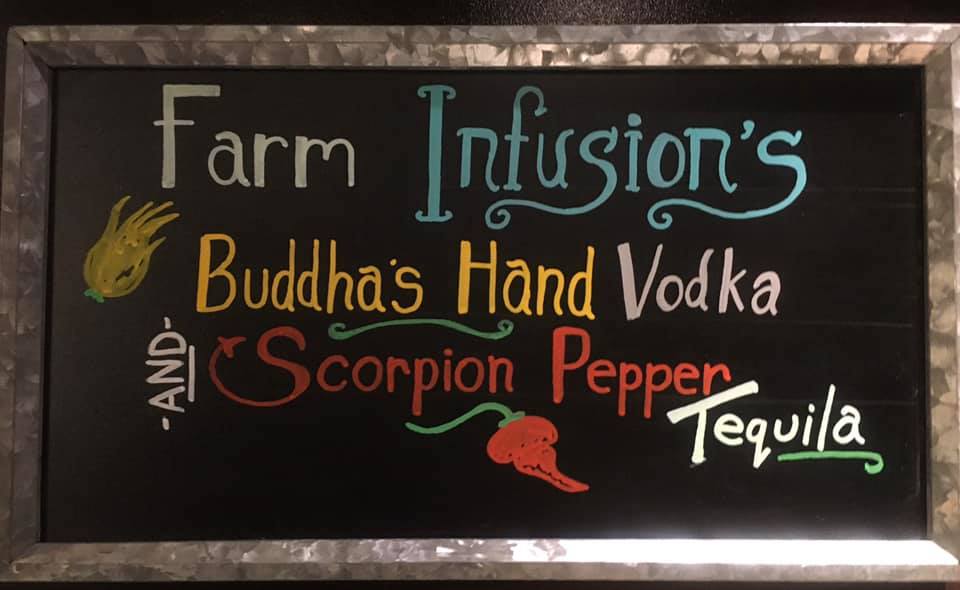 Farm Infusion's
Buddha's Hand Vodka
-AND-
Scorpion Pepper
Tequila